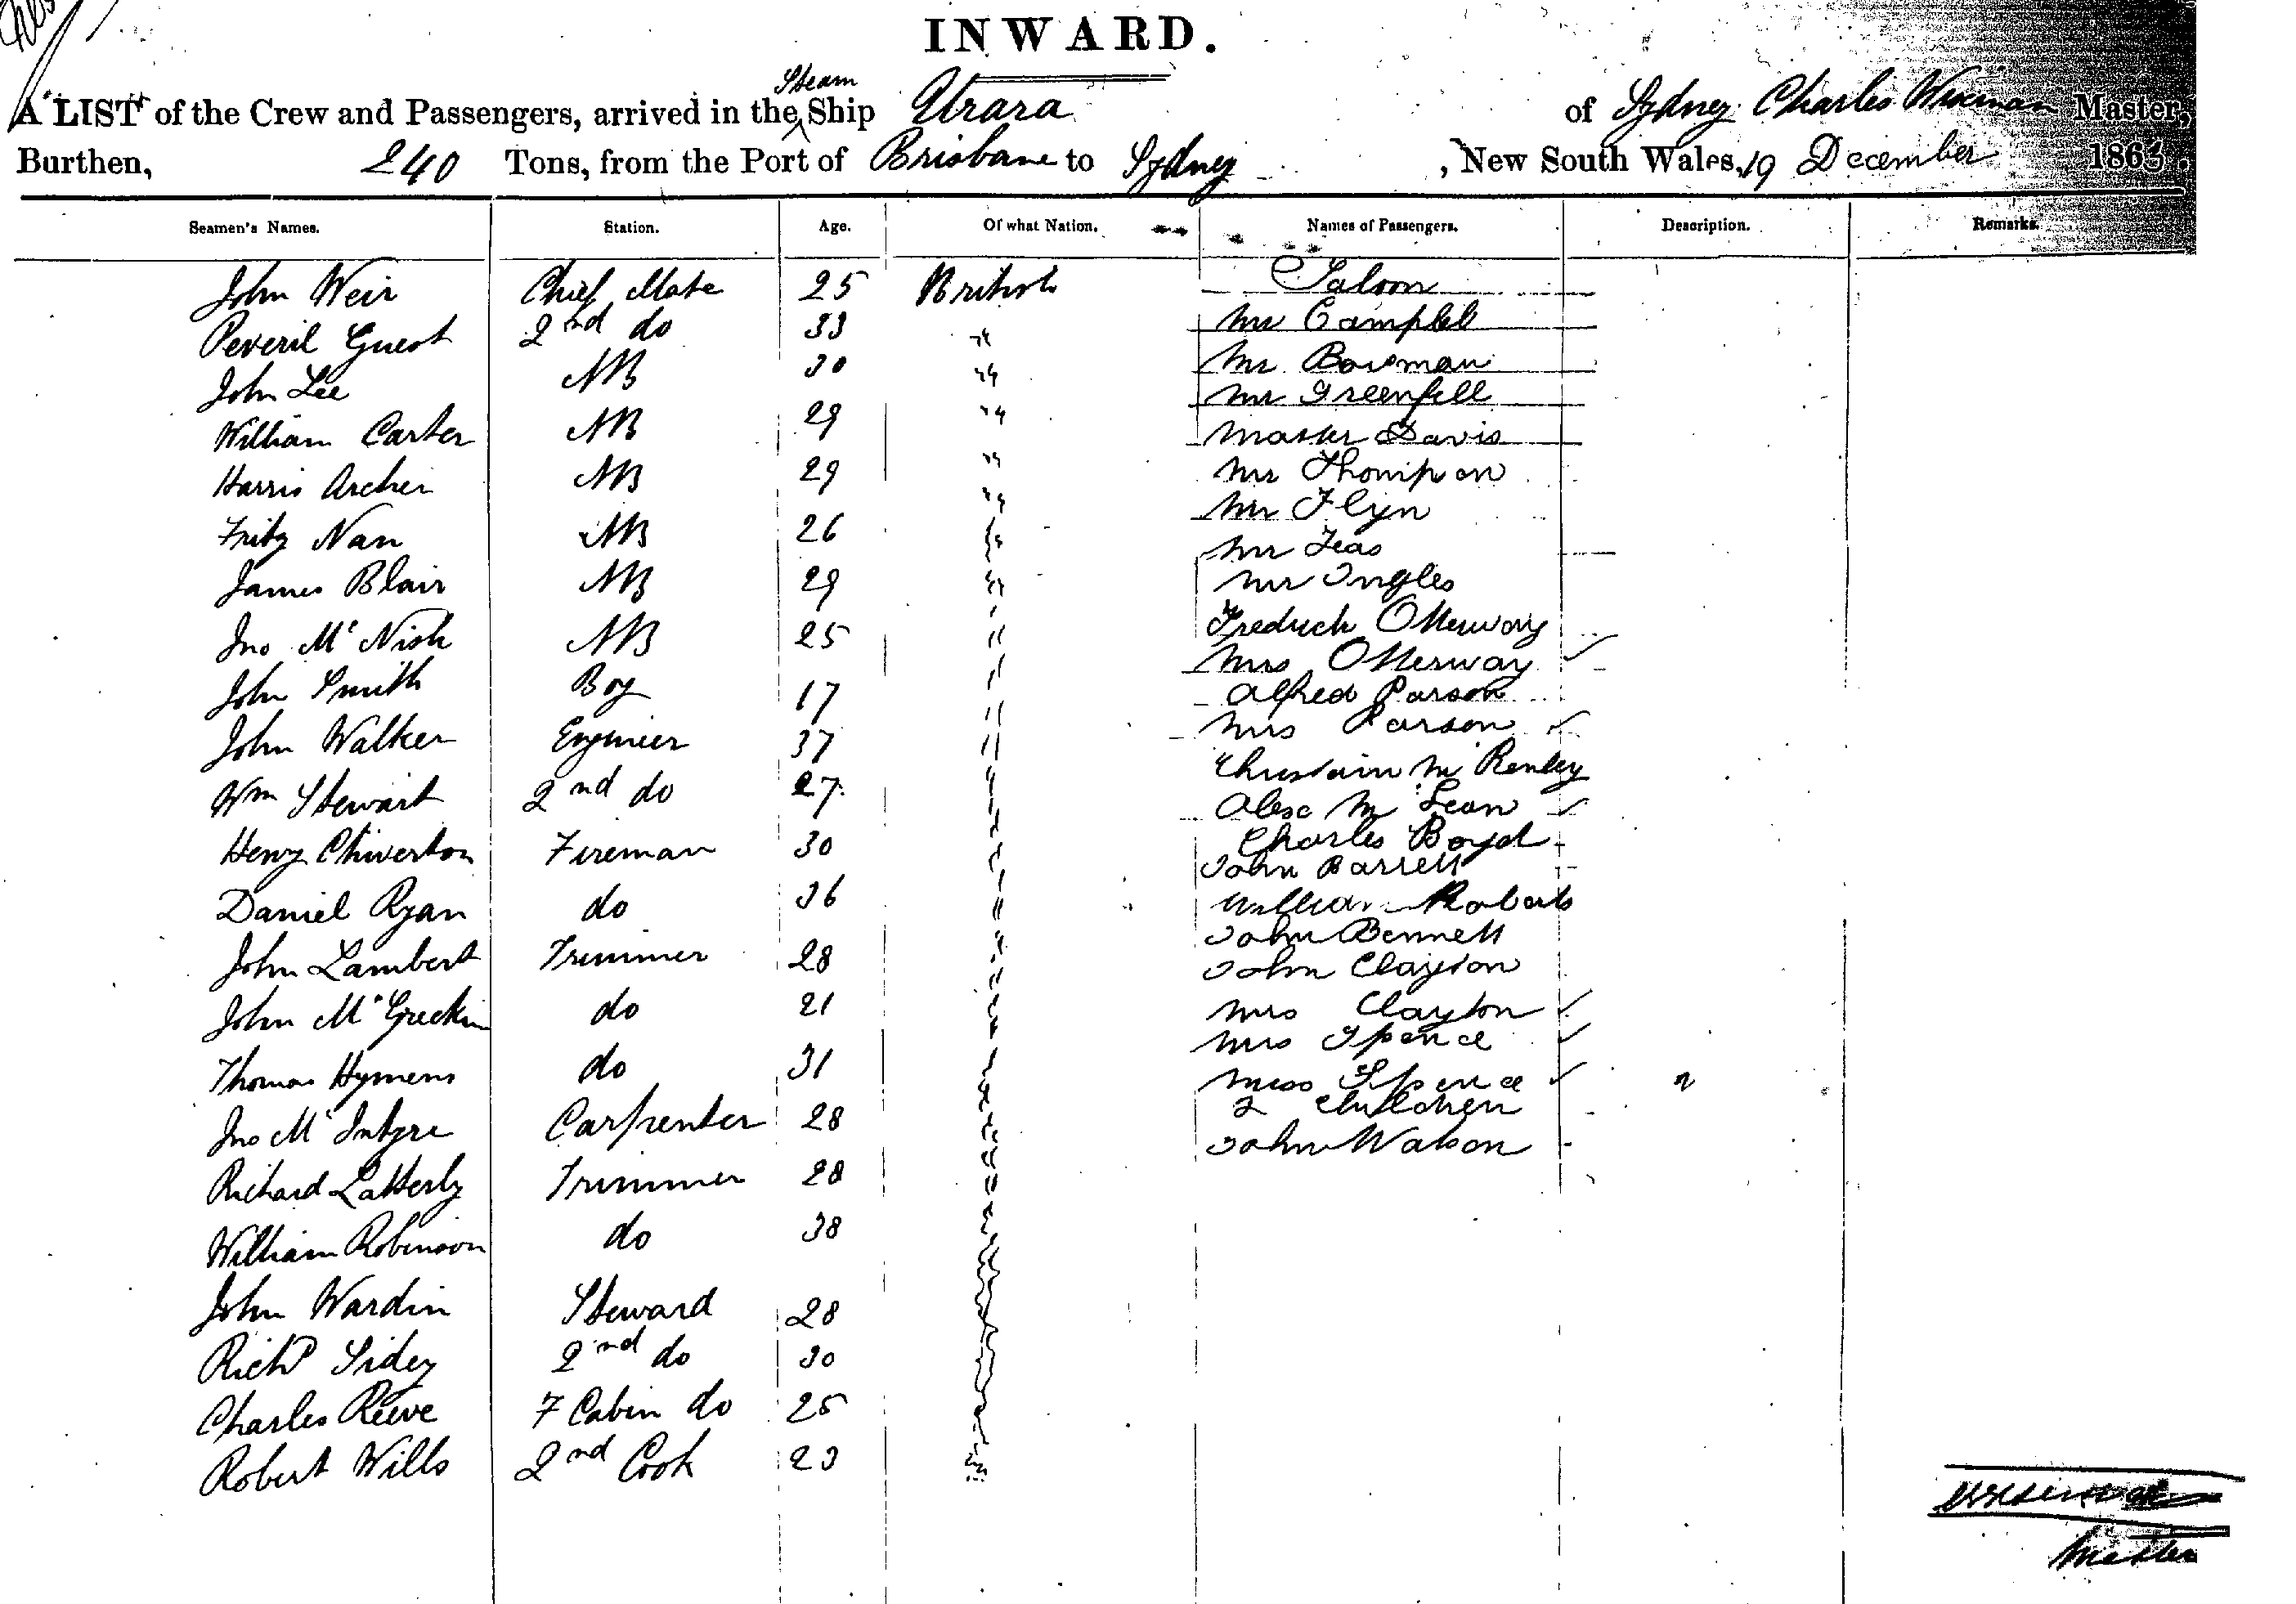 INWARD.
Steam
A LIST of the Crew and Passengers, arrived in the Ship Urara of Sydney Charles Wiseman Master,
Burthen, 240 Tons, from the Port of Brisbane to Sydney, New South Wales, 19 December 186
Seamen's Names. Station. Age. Of what Nation. Names of Passengers. Description. Remarks.
John Weir Chief Mate 25 British Saloon
Peveril Guest 2nd do 33 " Mr Campbell
John Lee AB 30 " Mr Bowman
Mr Greenfell
William Carter AB 29 " Master Davis
Harris Archer AB 29 " Mr Thompson
Mr Flyn
Fritz Nan AB 26 " Mr
James Blair AB 29 " Mr Ingles
Jno McNish AB 25 " Fredrich Otterway
Mrs Otterway
John Smith Boy 17 " Alfred Parson
John Walker Engineer 37 " Mrs Parson
Wm Stewart 2nd do 27 " Alex McLean
Henry Chiverton Fireman 30 " Charles Boyd
John Barrett
Daniel Ryan do 36 " William Roberts
John Bennett
John Lambert Trimmer 28 " John Clayton
John do 21 " Mrs Clayton
Mrs Spence
Thomas Hymens do 31 " Miss Spence
2 Children
Jno McIntyre Carpenter 28 " John Watson
Richard Latterly Trimmer 28 "
William Robinson do 38 "
John Wardin Steward 28 "
Richd Sidey 2nd do 30 "
Charles Reeve F Cabin do 25 "
Robert Wills 2nd Cook 23 "
Master